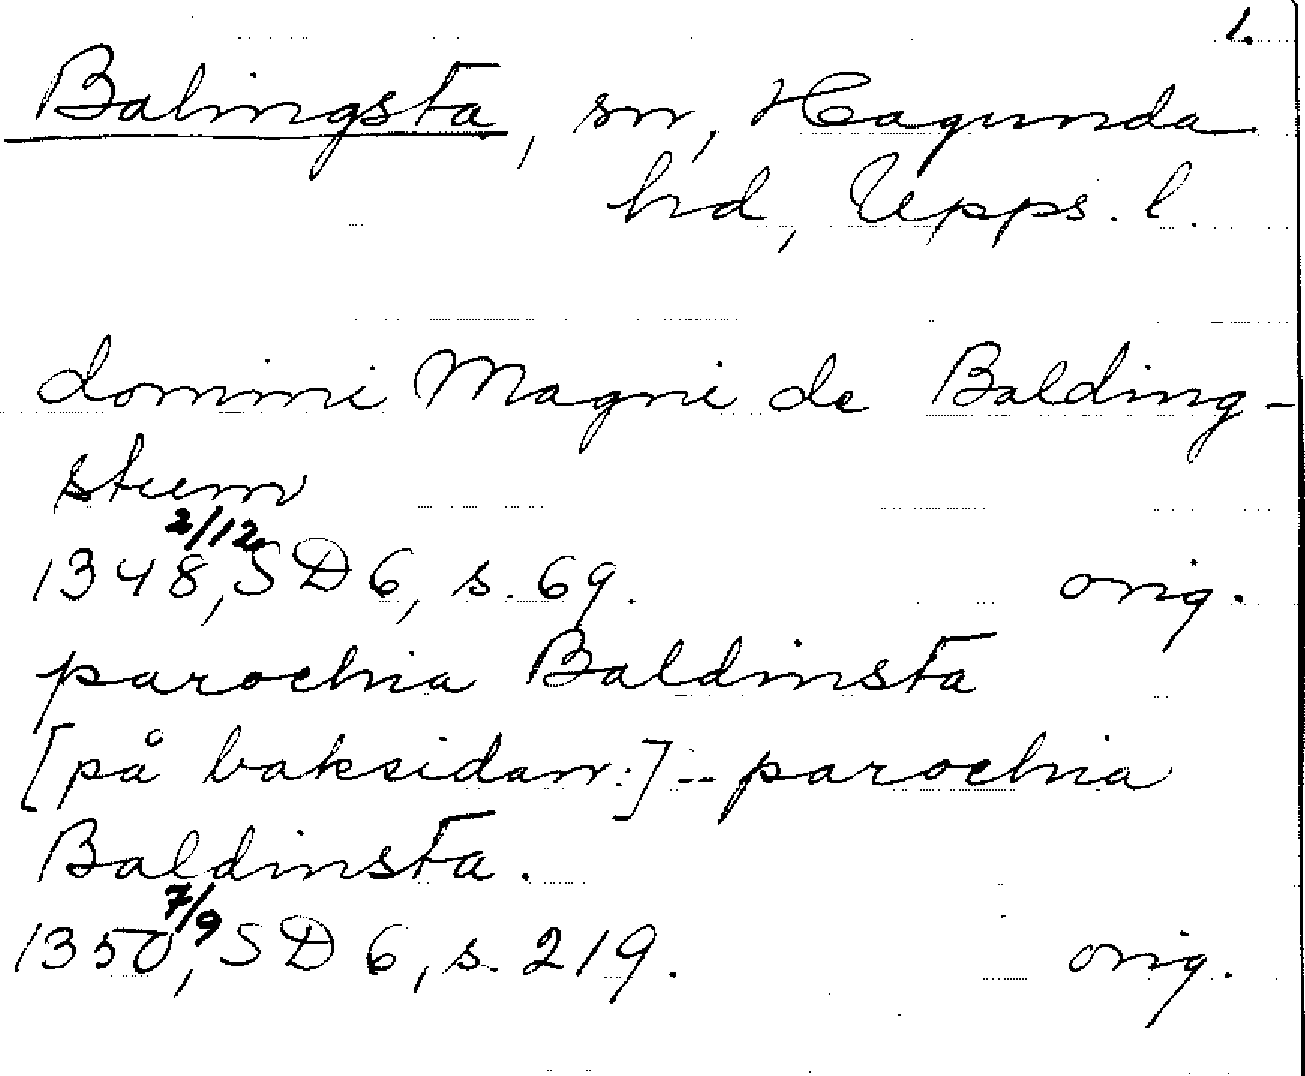 1.
Balingsta, sn, Hagunda
hd, Upps. l.
domini Magni de Balding-
stum
1348 2/12, SD 6, s. 69. orig.
parochia Baldinsta
[på baksidan:] -- parochia
Baldinsta.
1350 7/9, SD 6, s. 219. orig.